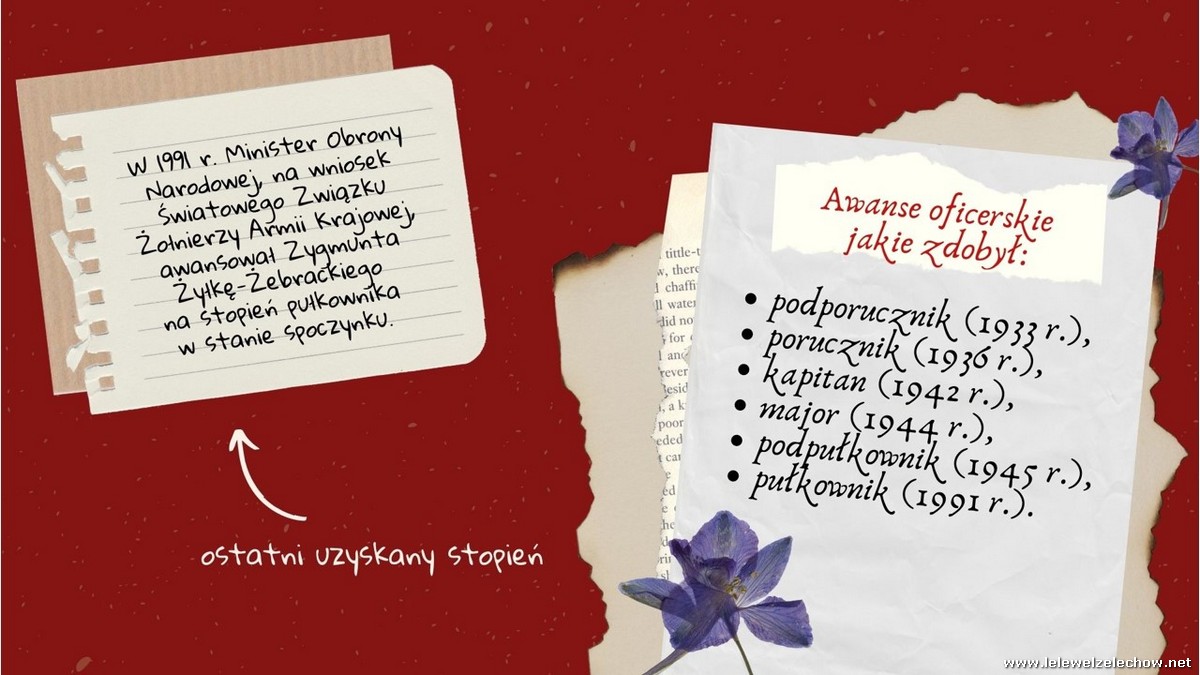 W 1991 r. Minister Obrony
Narodowej, na wniosek
Światowego Związku
Żołnierzy Armii Krajowej,
awansował Zygmunta
Żyłkę-Żebrackiego
na stopień pułkownika
w stanie spoczynku.
ostatni uzyskany stopień
Awanse oficerskie
jakie zdobył:
• podporucznik (1933 r.),
• porucznik (1936 r.),
• kapitan (1942 r.),
• major (1944 r.),
• podpułkownik (1945 r.),
• pułkownik (1991 r.).
www.lelewelzelechow.net